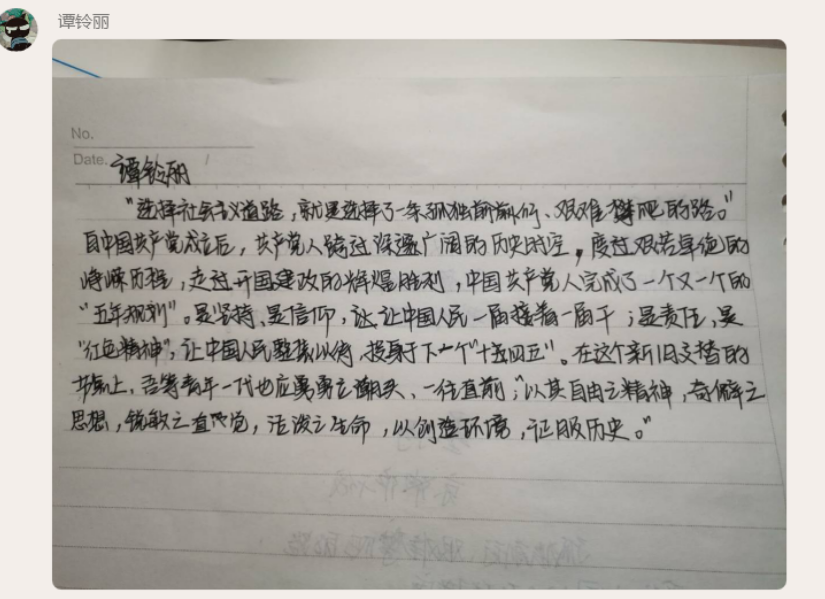 谭铃丽
No.
Date. /
谭铃丽
"选择社会主义道路，就是选择了一条孤独前行、艰难攀爬的路。"
自中国共产党成立后，共产党人跨过深邃广阔的历史时空，度过艰苦卓绝的
峥嵘历程，走过开国建政的辉煌胜利，中国共产党人完成了一个又一个的
"五年规划"。是坚持、是信仰，让中国人民一届接着一届干；是责任、是
"红色精神"，让中国人民整装以待，投身于下一个"十四五"。在这个新旧交替的
步氧上，吾等青年一代也应勇立潮头、一往直前，"以其自由之精神，奇僻之
思想，锐敏之直觉，活泼之生命，以创造环境，征服历史。"